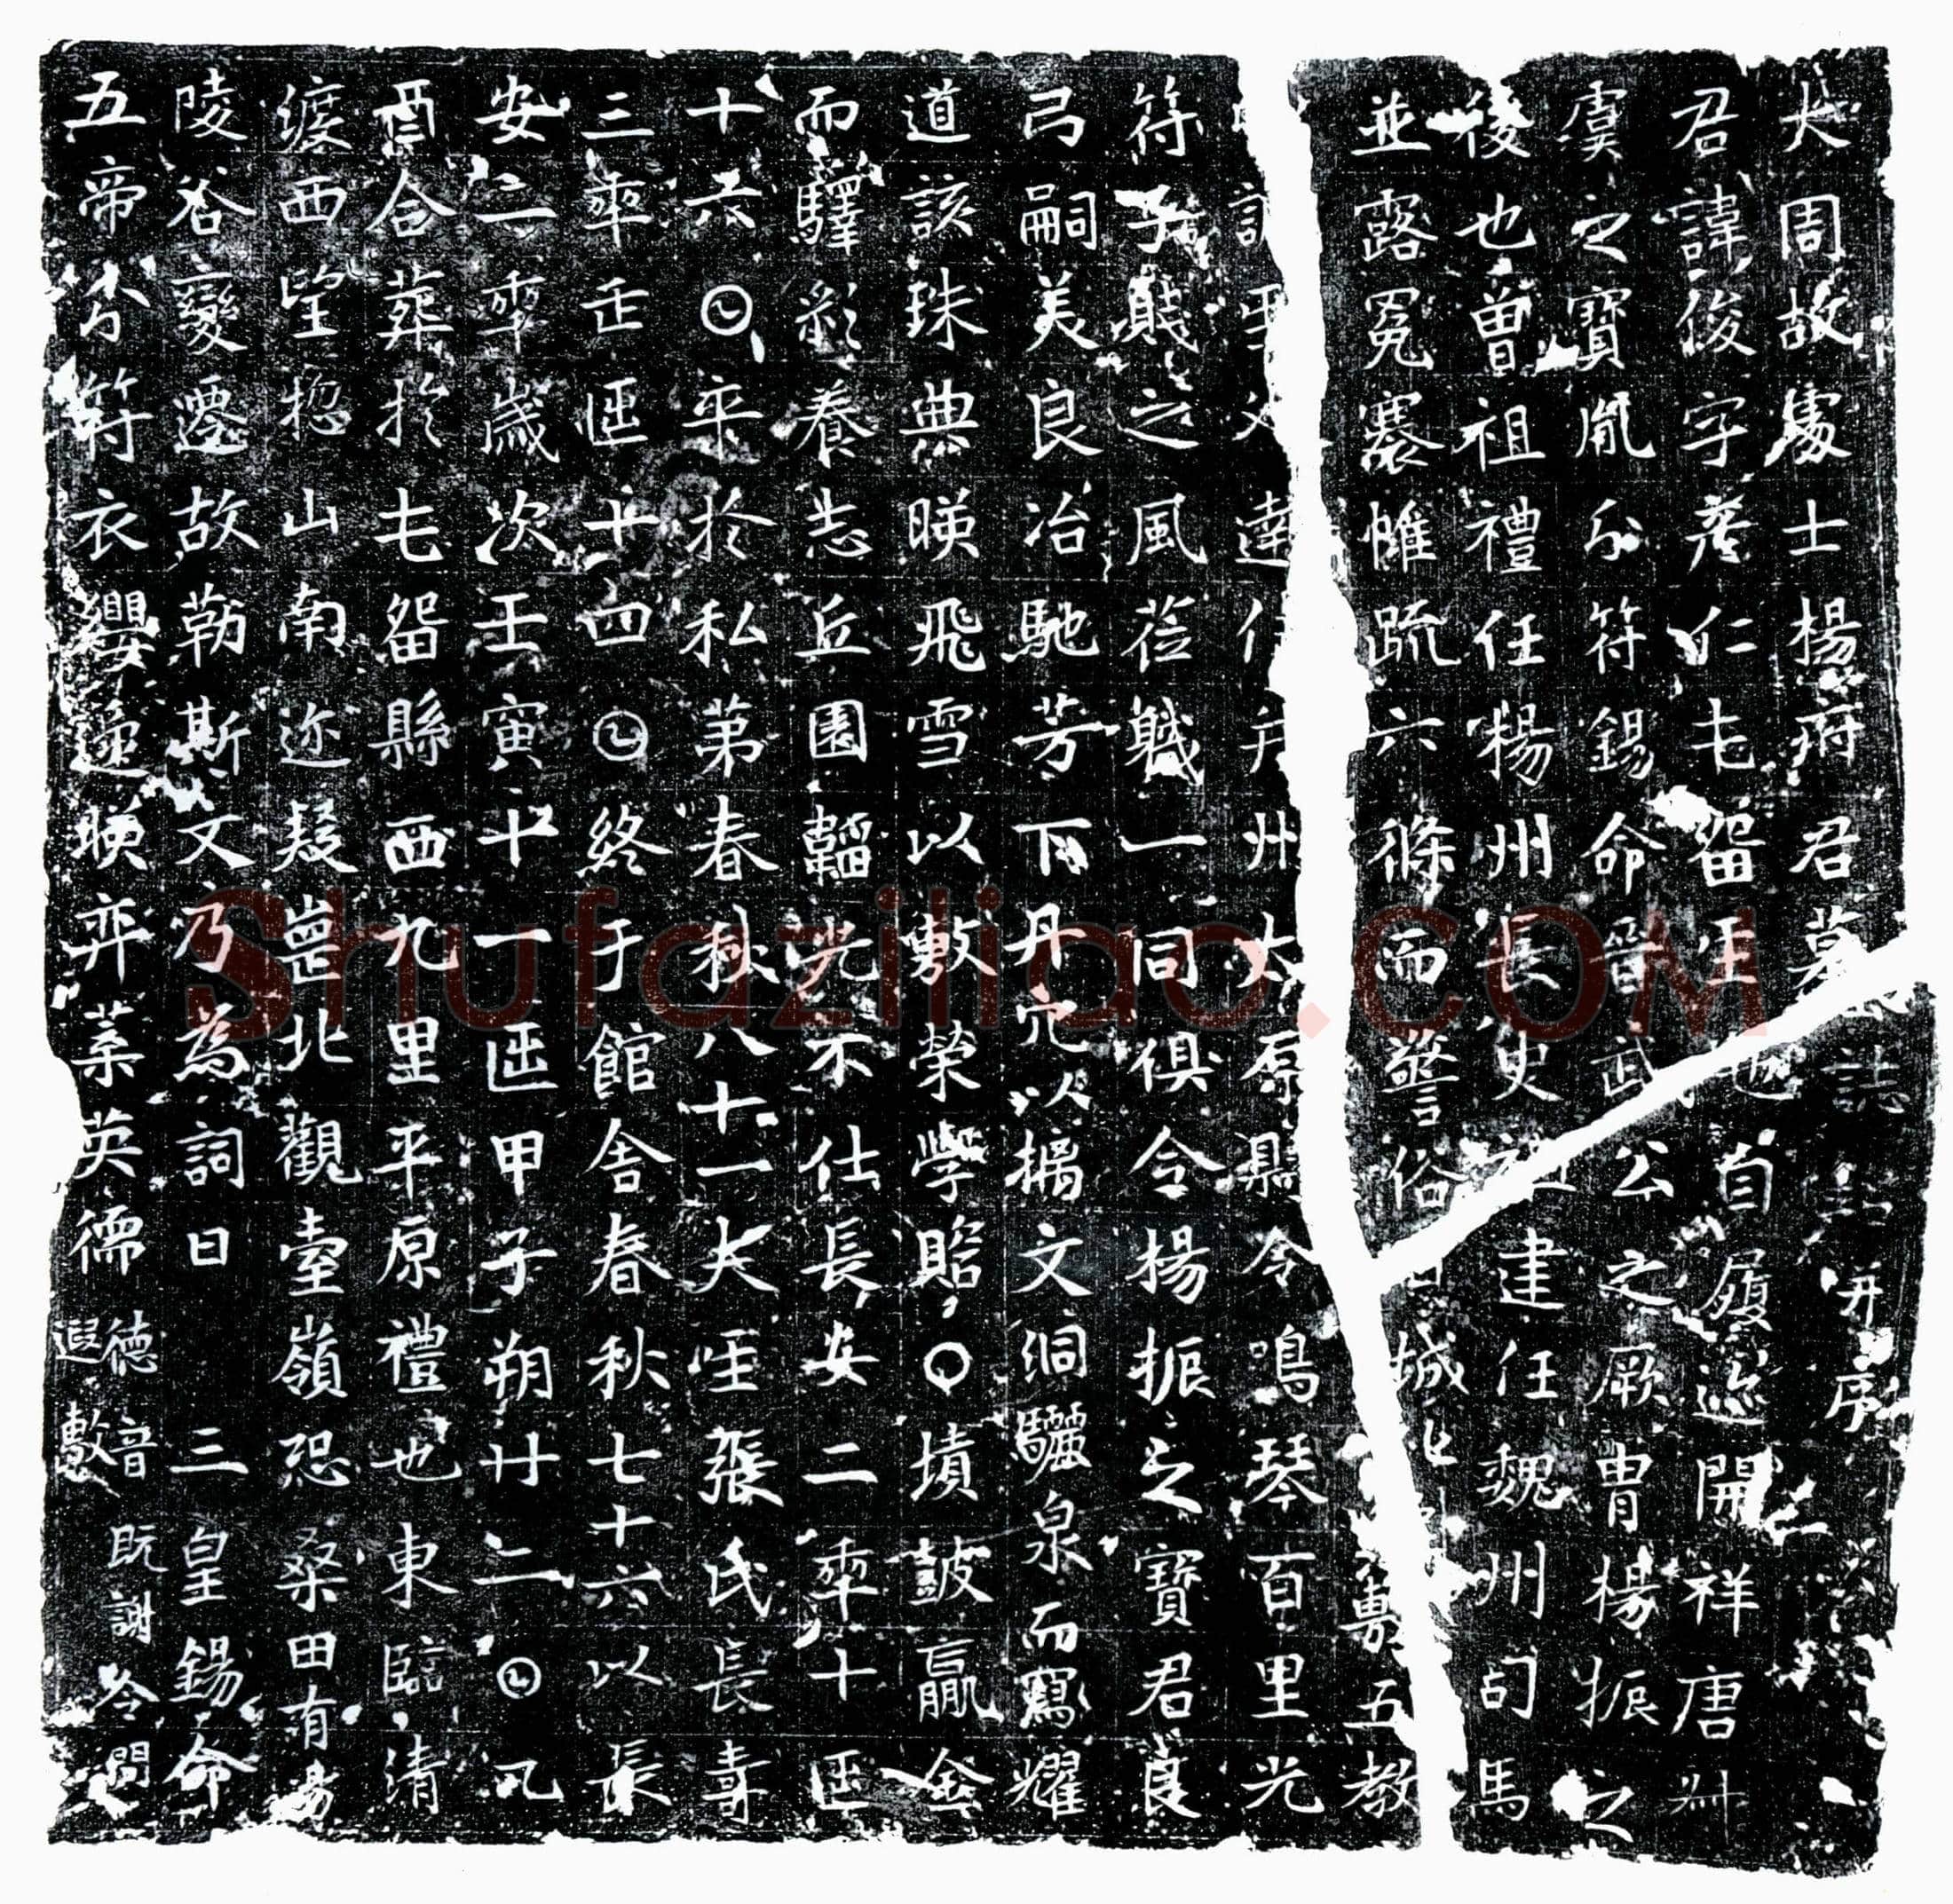 大周故處士楊府君墓誌銘并序
君諱俊字彥仁屯留𤯔也自履迹開祥唐
虞之寶胤分符錫命晉武公之厥胄楊振之
後也曾祖禮任楊州長史祖建任魏州司馬
並露冕褰帷疏六條而警俗城敷五教
父達任并州太原縣令鳴琴百里光
符子賤之風莅職一同俱令揚振之寶君良
弓嗣美良冶馳芳下丹穴以摛文洞驪泉而寫耀
道該珠典暎飛雪以敷榮學贍〇墳詖贏金
而驛彩養志丘園韜光不仕長安二𠡦十𠥱
十六𡆠卒於私第春秋八十一夫𤯔張氏長壽
三𠡦𠙺𠥱十四𡆠終于館舍春秋七十六以長
安二𠡦歲次壬寅十一𠥱甲子朔廿二𡆠乙
酉合葬於屯留縣西九里平原禮也東臨清
渡西望惣山南迩疑崗北觀臺嶺恐桑田有易
陵谷變遷故勒斯文乃為詞曰　三皇錫命
五帝分符衣纓遞暎弈葉英儒德音既謝令問遐敷